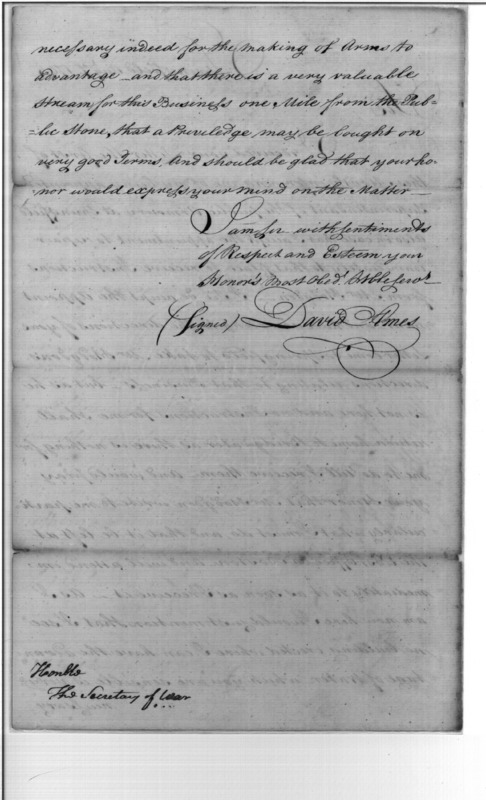 necessary indeed for the making of Arms to
advantage and that there is a very valuable
Stream for this Business one Mile from the Pub-
-lic Store, that a Priveledge may be bought on
very good Terms. And should be glad that your ho-
nor would express your mind on the Matter—
I am Sir with sentiments
of Respect and Esteem your
Honor's Most Obed.t Hble Serv.t
(Signed) David Ames
Honble
The Secretary of War